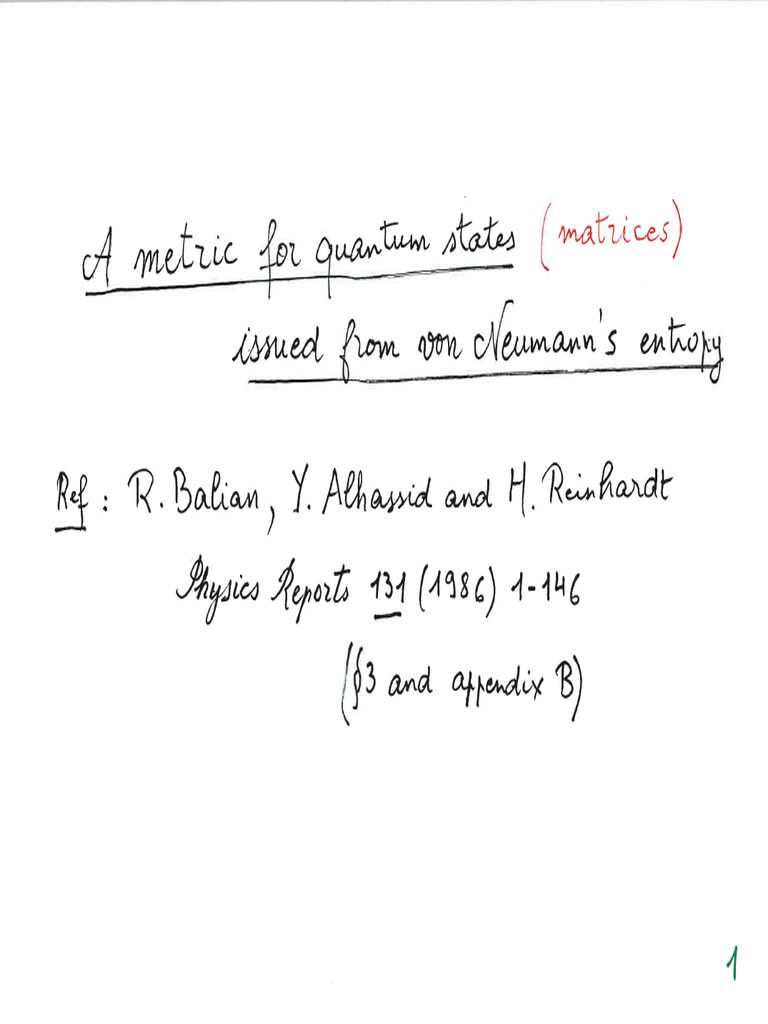 A metric for quantum states (matrices)
issued from von Neumann's entropy
Ref : R. Balian, Y. Alhassid and H. Reinhardt
Physics Reports 131 (1986) 1-146
(§3 and appendix B)
1